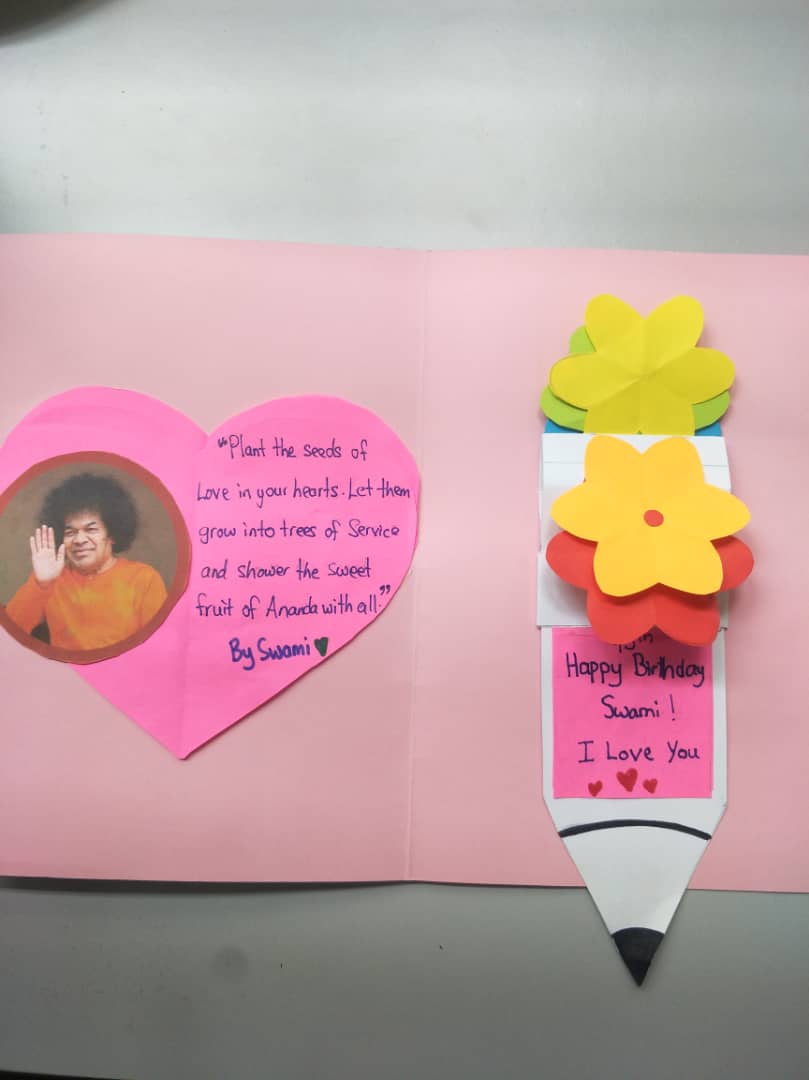 "Plant the seeds of
Love in your hearts. Let them
grow into trees of Service
and shower the sweet
fruit of Ananda with all."
By Swami
Happy Birthday
Swami !
I Love You